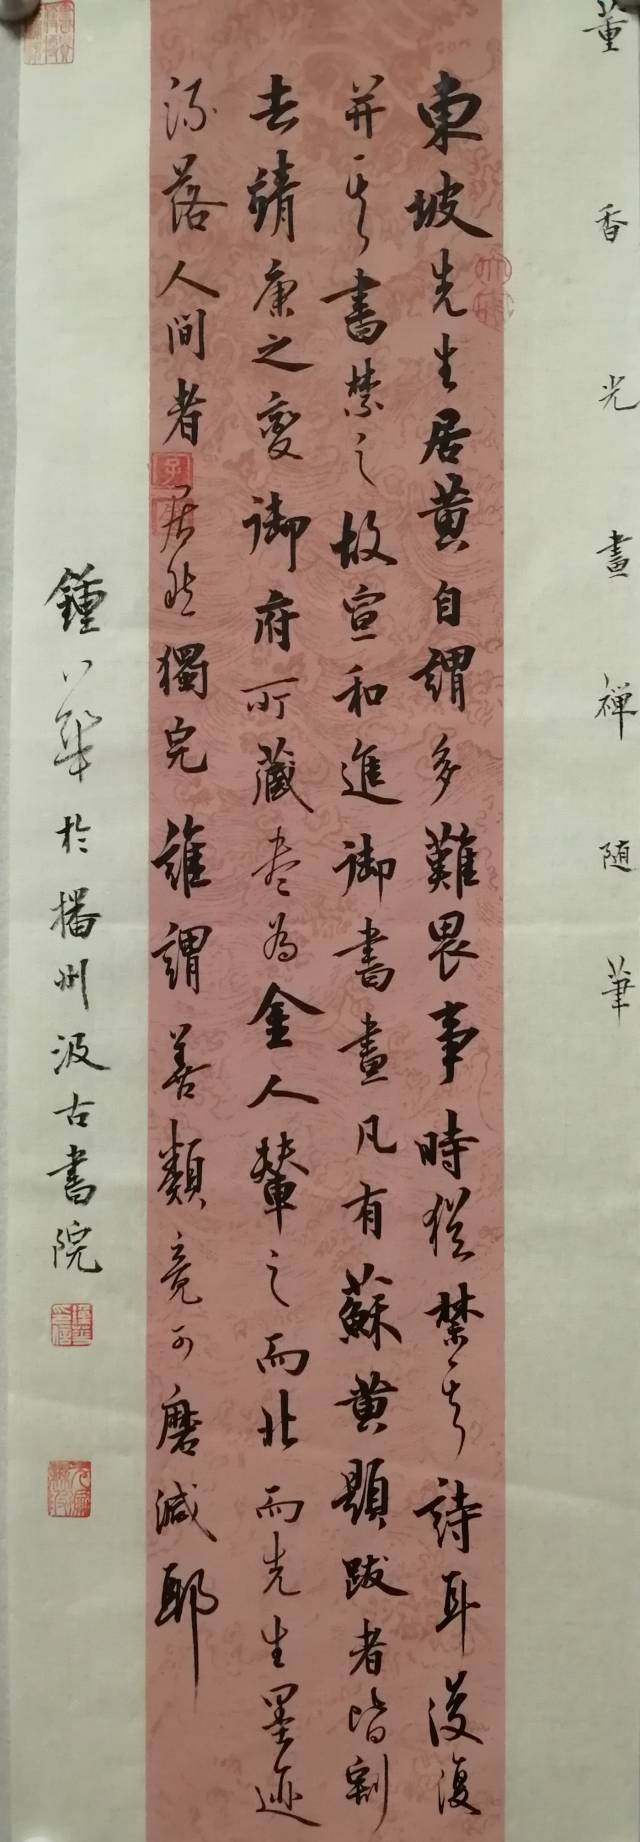 董香光畫禪随筆
東坡先生居黄自謂多難畏事時猶禁其詩耳後復
并其書禁之故宣和進御書畫凡有蘇黄題跋者皆割
去靖康之變御府所藏盡為金人輦之而北而先生墨迹
流落人间者居然獨完誰謂善類竟可磨滅耶
鍾華於播州汲古書院